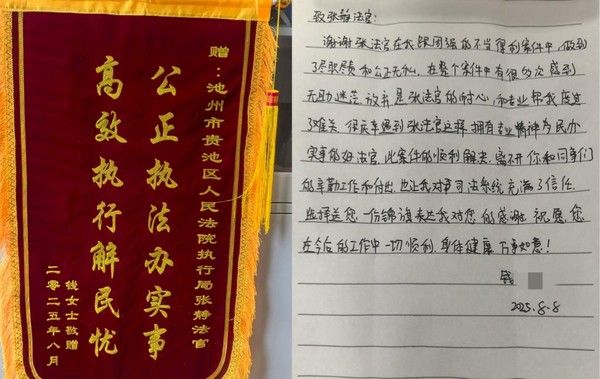 赠：池州市贵池区人民法院执行局张静法官
公正执法办实事
高效执行解民忧
钱女士敬赠
二零二五年八月
致张静法官：
谢谢张法官在我跟闭强的不当得利案件中，做到
了尽职尽责和公正无私，在整个案件中有很多次感到
无助迷茫，放弃是张法官的耐心，和专业帮我度过
了难关，很庆幸遇到张法官这样拥有专业精神为民办
实事的好法官。此案件的顺利解决，离不开你和同事们
的辛勤工作和付出，也让我对司法系统充满了信任
选择送您一份锦旗表达我对您的感谢，祝愿您
在今后的工作中一切顺利，身体健康，万事如意！
钱
2025.8.8